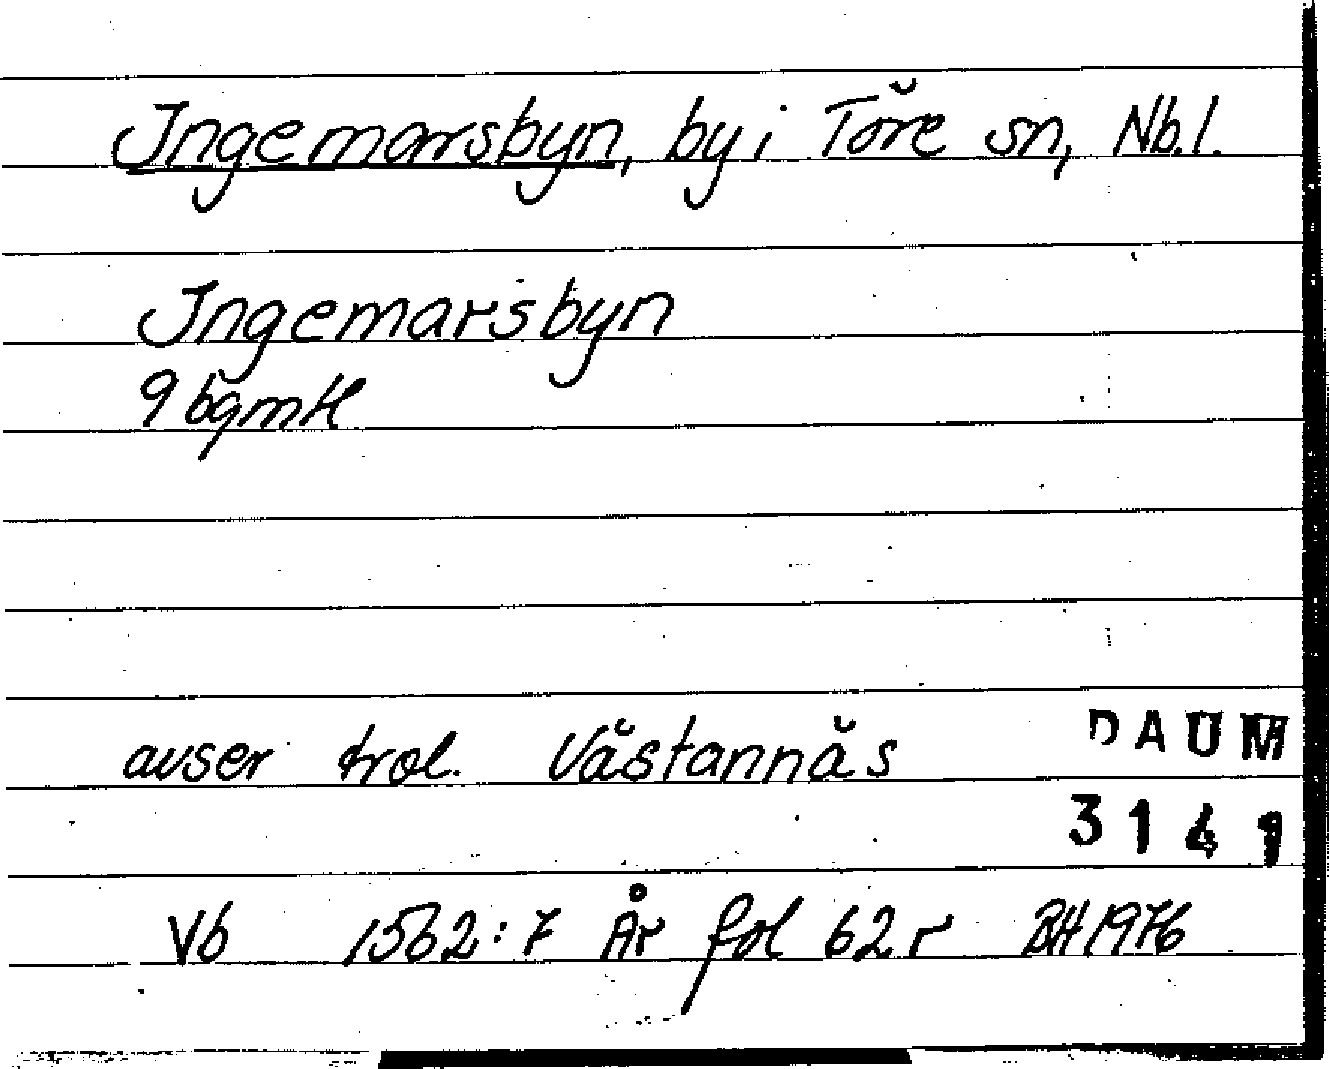 Ingemarsbyn, by i Töre sn, Nb.l.
Ingemarsbyn
9 bgmtl
avser trol. Västannäs
DAUM
3141
Vb 1562:7 År fol 62 r BH 1976